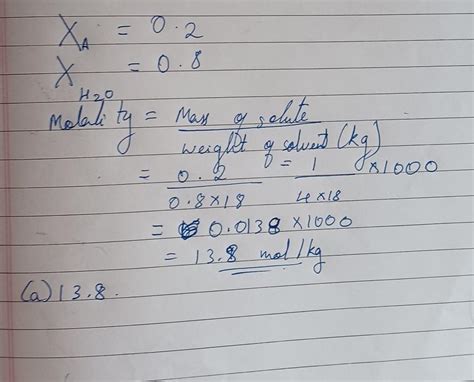 X_A = 0.2
X_H2O = 0.8
Molality = Mass of solute
weight of solvent (kg)
= 0.2 = 1 ×1000
0.8×18 4×18
= 0.0138 ×1000
= 13.8 mol/kg
(a) 13.8.